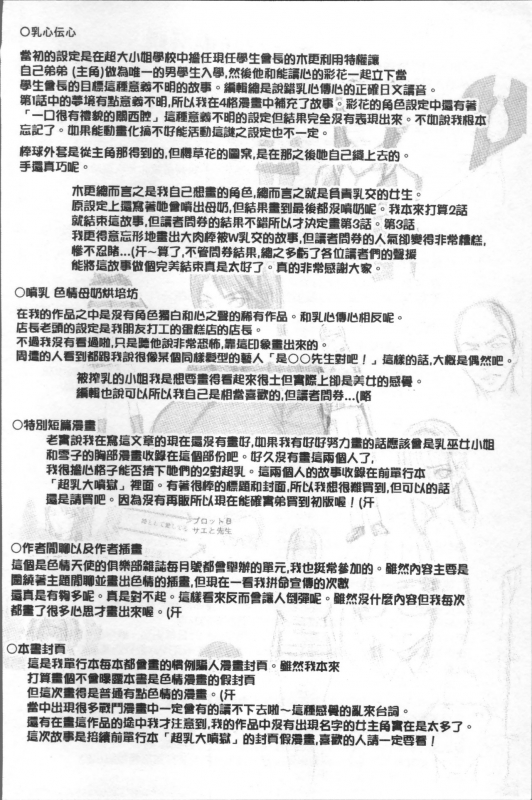 ○乳心伝心
當初的設定是在超大小姐學校中擔任現任學生會長的木更利用特權讓
自己弟弟 (主角)做為唯一的男學生入學,然後他和能讀心的彩花一起立下當
學生會長的目標這種意義不明的故事。編輯總是說錯乳心傳心的正確日文讀音。
第1話中的夢境有點意義不明,所以我在4格漫畫中補充了故事。彩花的角色設定中還有著
「一口很有禮貌的關西腔」這種意義不明的設定但結果完全沒有表現出來。不如說我根本
忘記了。如果能動畫化搞不好能活動這謎之設定也不一定。
棒球外套是從主角那得到的,但櫻草花的圖案,是在那之後她自己縫上去的。
手還真巧呢。
木更總而言之是我自己想畫的角色,總而言之就是負責乳交的女生。
原設定上還寫著她會噴出母奶,但結果畫到最後都沒噴奶呢。我本來打算2話
就結束這故事,但讀者問券的結果不錯所以才決定畫第3話。第3話
我更得意忘形地畫出大肉棒被W乳交的故事,但讀者問券的人氣卻變得非常糟糕,
慘不忍睹...(汗~算了,不管問券結果,總之多虧了各位讀者們的聲援
能將這故事做個完美結束真是太好了。真的非常感謝大家。
○噴乳 色情母奶烘培坊
在我的作品之中是沒有角色獨白和心之聲的稀有作品。和乳心傳心相反呢。
店長老頭的設定是我朋友打工的蛋糕店的店長。
不過我沒有看過啦,只是聽他說非常恐怖,靠這印象畫出來的。
周遭的人看到都跟我說很像某個同樣髮型的藝人「是○○先生對吧！」這樣的話,大概是偶然吧。
被搾乳的小姐我是想要畫得看起來很土但實際上卻是美女的感覺。
編輯也說可以所以我自己是相當喜歡的,但讀者問券...(略
○特別短篇漫畫
老實說我在寫這文章的現在還沒有畫好,如果我有好好努力畫的話應該會是乳巫女小姐
和雪子的胸部漫畫收錄在這個部份吧。好久沒有畫這兩個人了,
我很擔心格子能否擠下她們的2對超乳。這兩個人的故事收錄在前單行本
「超乳大噴獄」裡面。有著很棒的標題和封面,所以我想很難買到,但可以的話
還是請買吧。因為沒有再販所以現在能確實弟買到初版喔！(汗
プロットB
サエと先生
○作者閒聊以及作者插畫
這個是色情天使的俱樂部雜誌每月號都會舉辦的單元,我也挺常參加的。雖然內容主要是
圍繞著主題閒聊並畫出色情的插畫,但現在一看我拼命宣傳的次數
還真是有夠多呢。真是對不起。這樣看來反而會讓人倒彈呢。雖然沒什麼內容但我每次
都畫了很多心思才畫出來喔。(汗
○本書封頁
這是我單行本每本都會畫的慣例騙人漫畫封頁。雖然我本來
打算畫個不會曝露本書是色情漫畫的假封頁
但這次畫得是普通有點色情的漫畫。(汗
當中出現很多戰鬥漫畫中一定會有的讀不下去啦～這種感覺的亂來台詞。
還有在畫這作品的途中我才注意到,我的作品中沒有出現名字的女主角實在是太多了。
這次故事是掊續前單行本「超乳大噴獄」的封頁假漫畫,喜歡的人請一定要看！